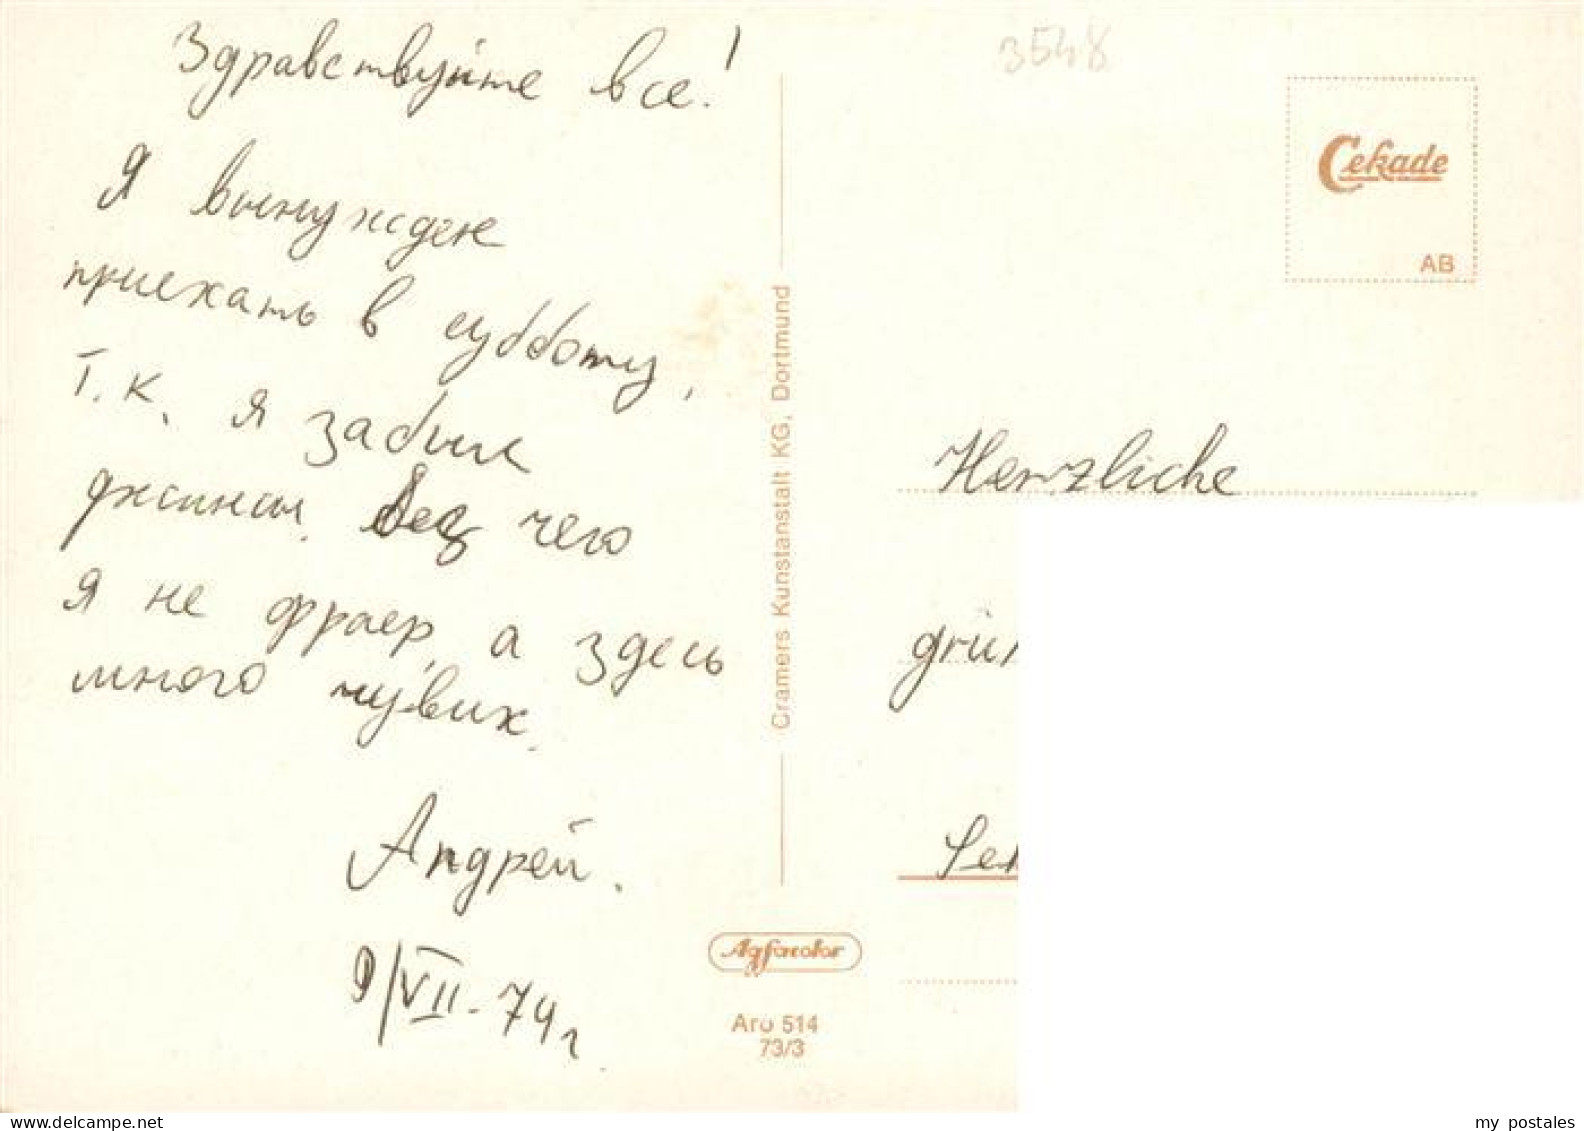 Здравствуйте все!
Я вынужден
приехать в субботу,
т.к. я забыл
джинсы. Без чего
я не фраер, а здесь
много чувих.
Андрей.
9/VII-74г.
3548
Cekade
AB
Cramers Kunstanstalt KG, Dortmund
Herzliche
grü
Agfacolor
Aro 514
73/3
www.delcampe.net
my postales